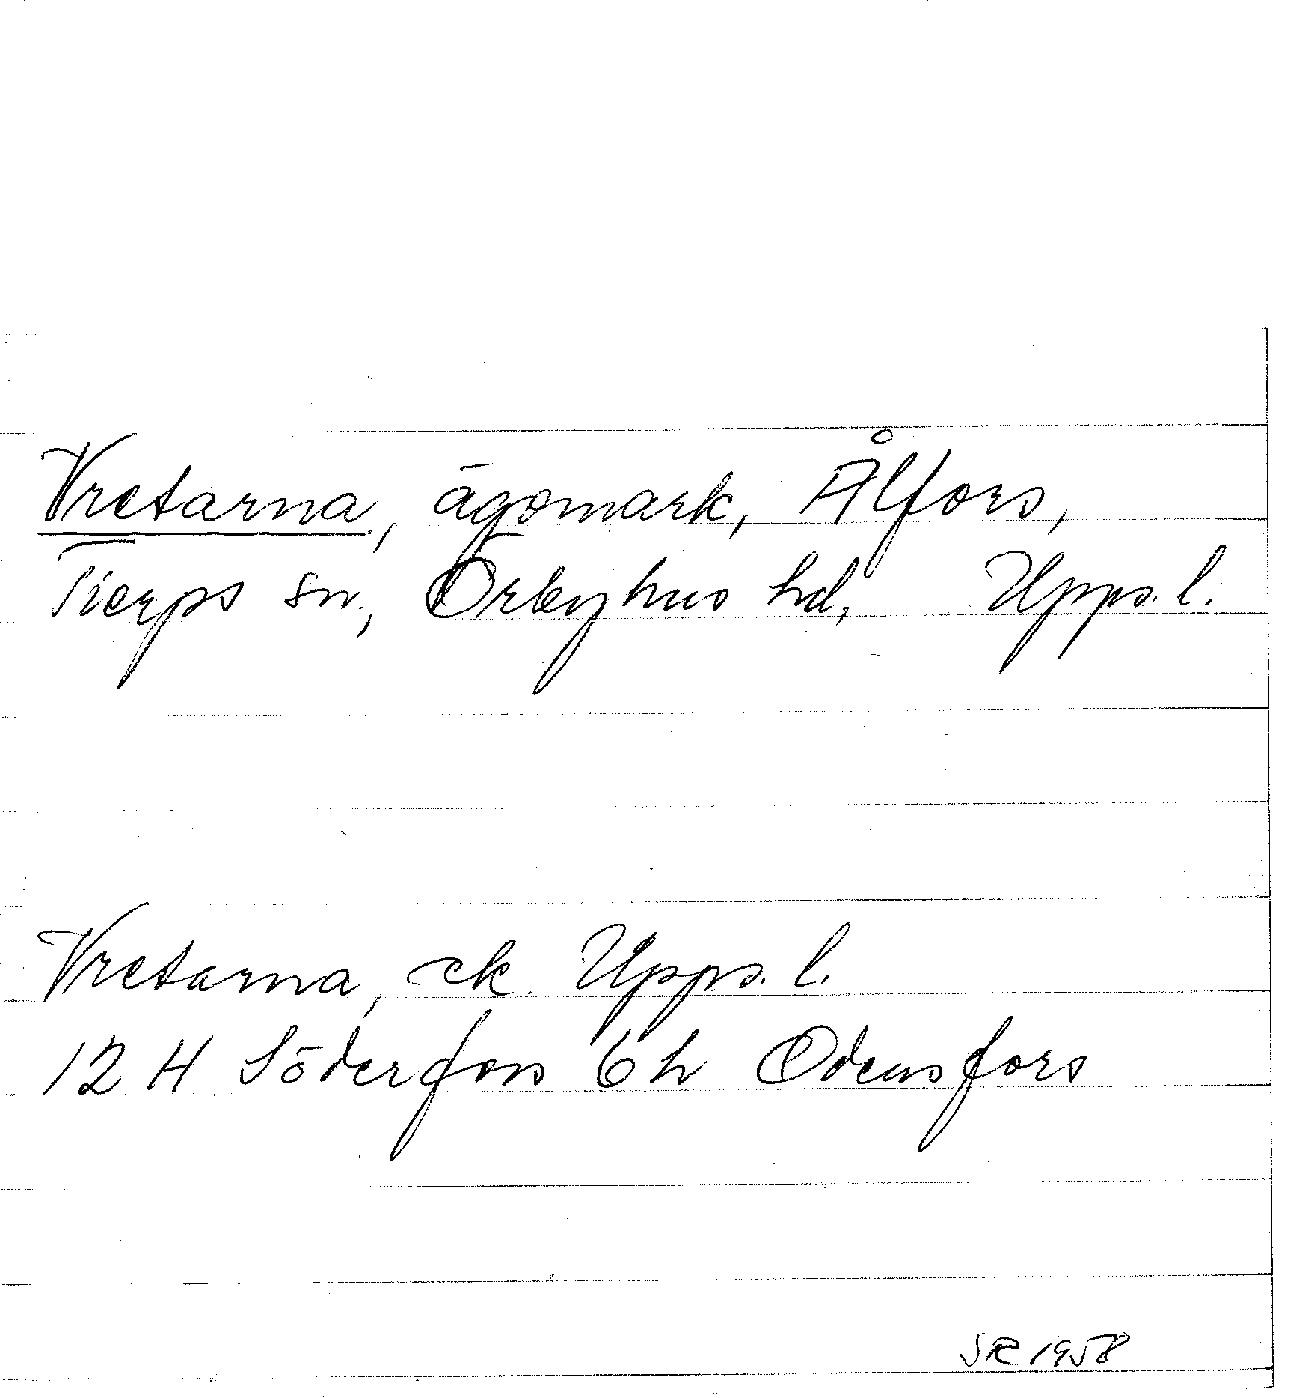 Vretarna, ägomark, Ålfors,
Tierps sn, Örbyhus hd, Upps. l.
Vretarna, ek. Upps. l.
12 H Söderfors 6h Odensfors
SR 1958